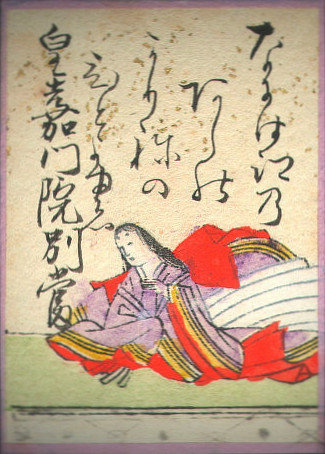 なには江乃
あしの
かり祢の
ひとよゆへ
皇嘉門院別當